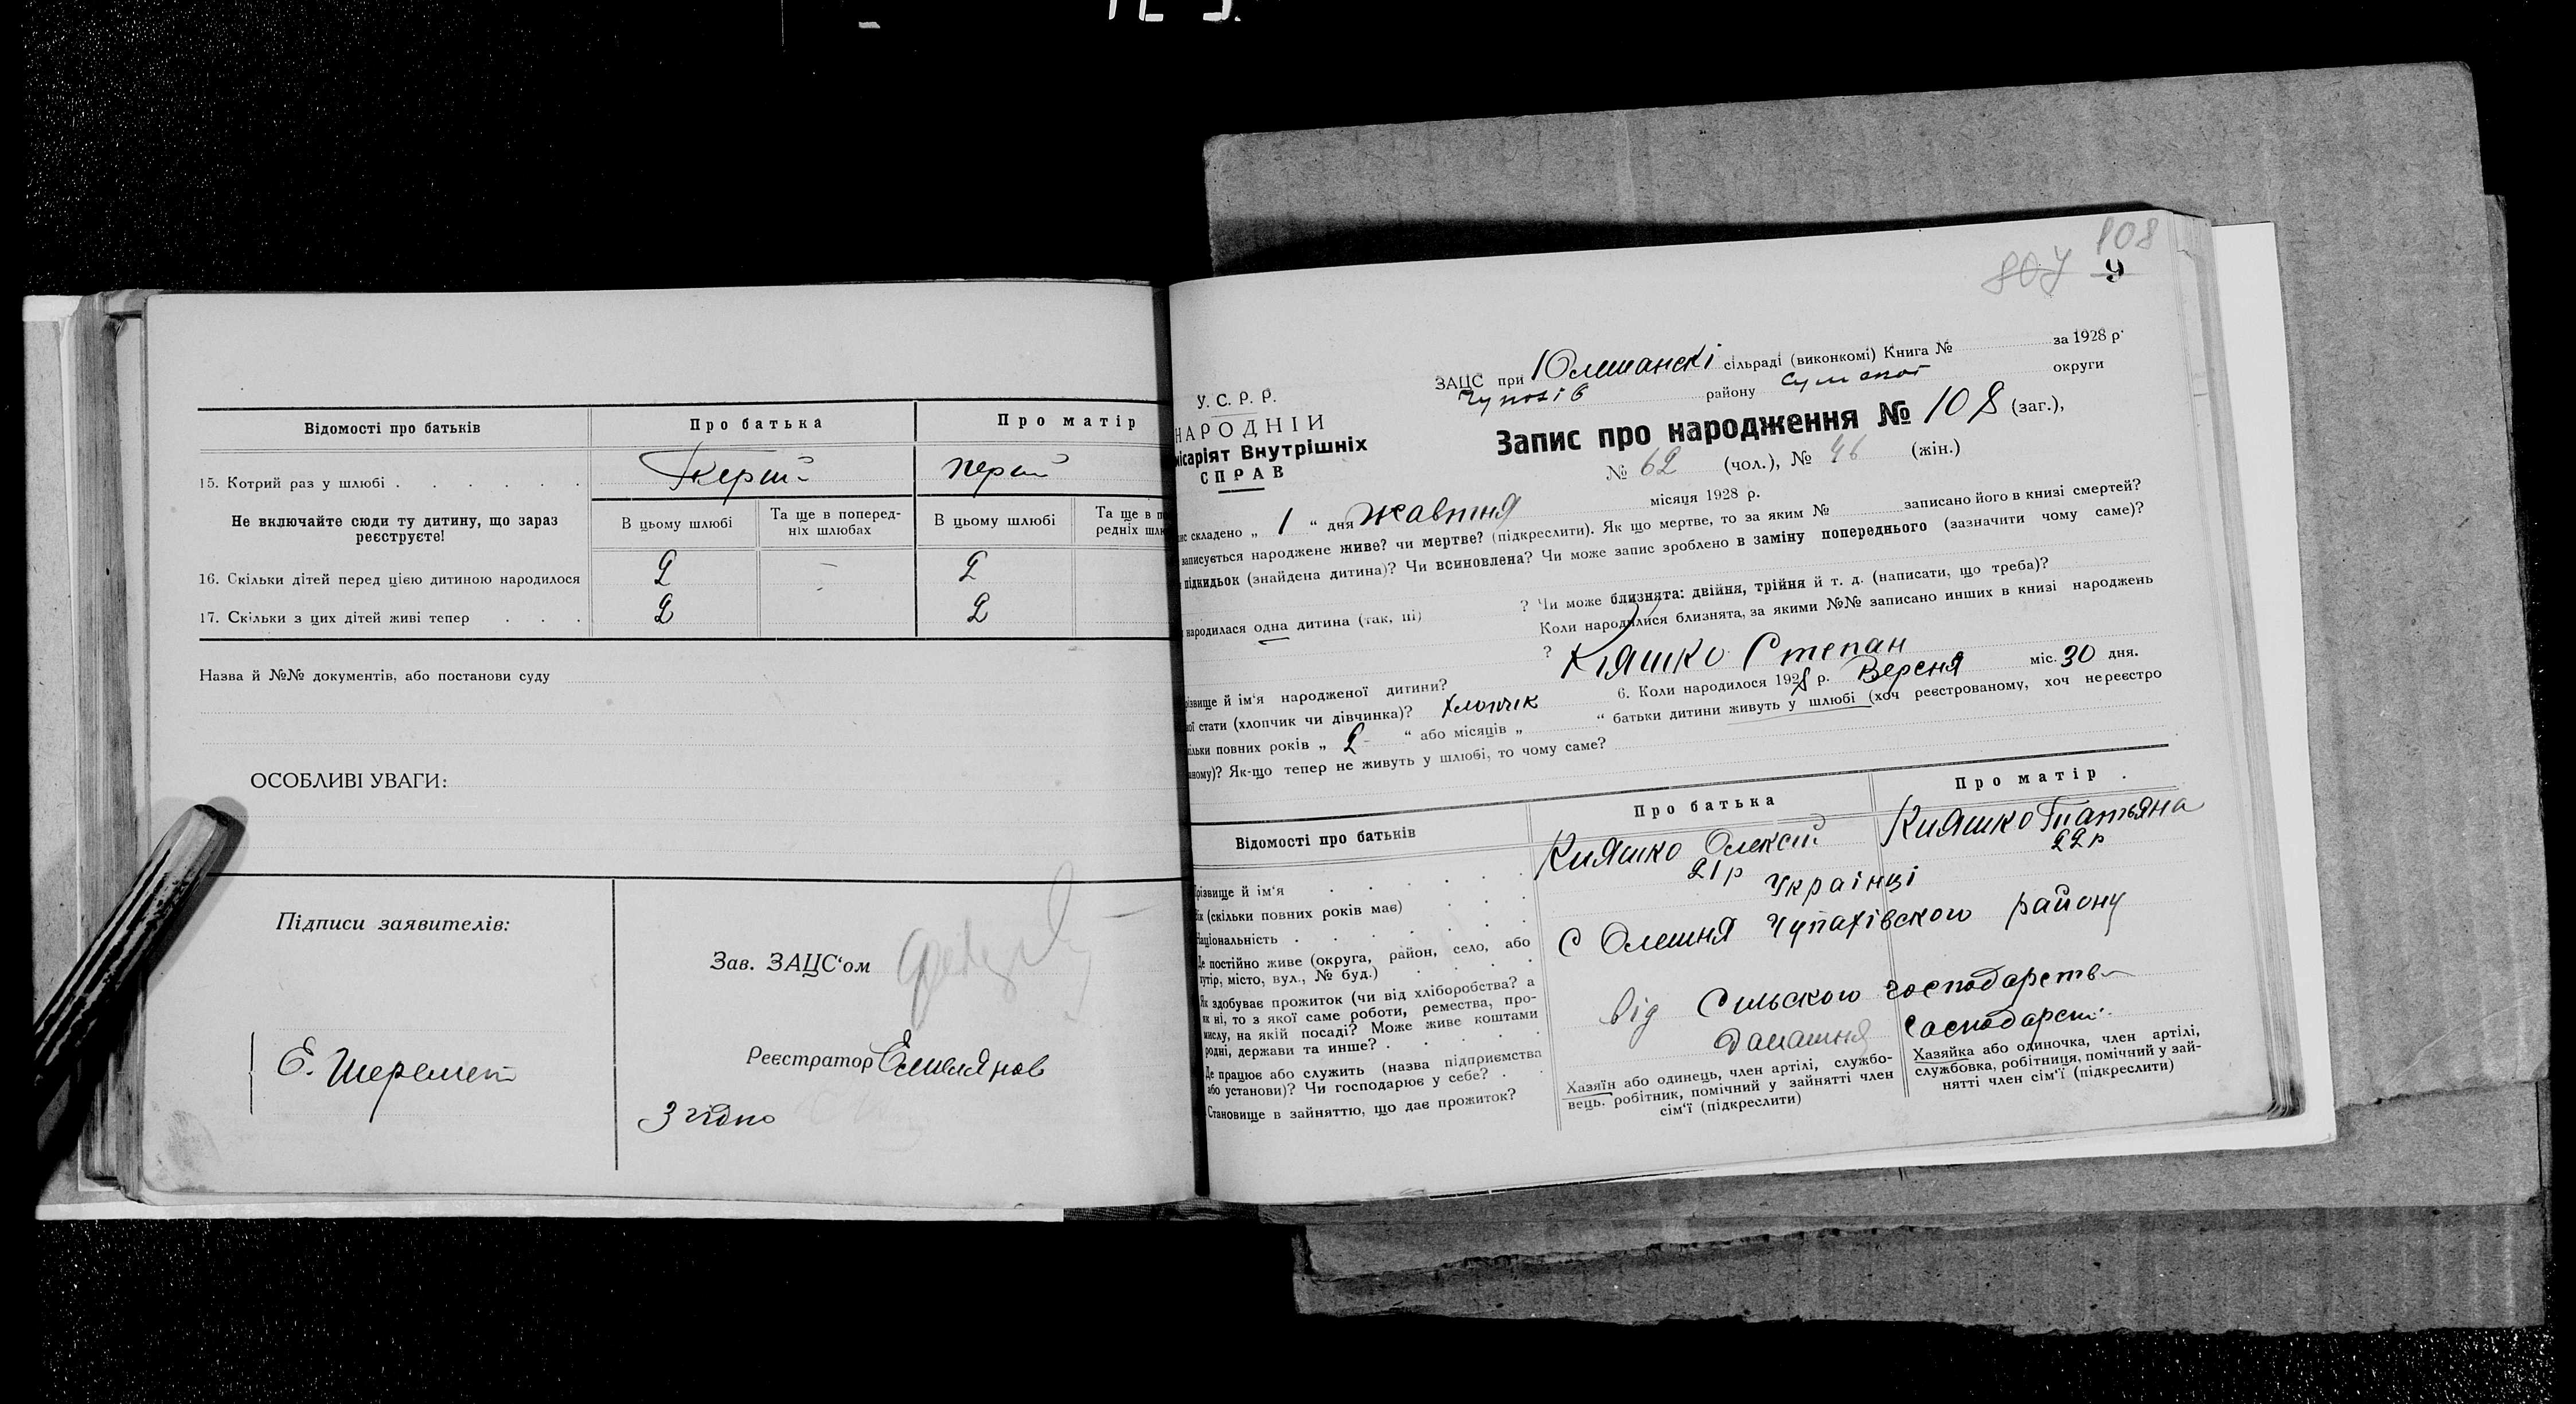 Відомості про батьків
Про батька
Про матір
15. Котрий раз у шлюбі
перший
Не включайте сюди ту дитину, що зараз
реєструєте!
В цьому шлюбі
Та ще в поперед-
ніх шлюбах
В цьому шлюбі
Та ще в
редніх
16. Скільки дітей перед цією дитиною народилося
2
-
2
17. Скільки з цих дітей живі тепер
2
-
2
Назва й №№ документів, або постанови суду
ОСОБЛИВІ УВАГИ:
Підписи заявителів:
Е. Шеремет
Зав. ЗАЦС'ом
Реєстратор Емилянов
Згідно
108
807 9
У. С. Р. Р.
НАРОДНІЙ
місаріят Внутрішніх
СПРАВ
ЗАЦС при Юлешанскі сільраді (виконкомі) Книга № за 1928 р.
району Сумської округи
Запис про народження № 108 (заг.),
№ 62 (чол.), № 46 (жін.)
складено „ 1 “ дня Жовтня місяця 1928 р.
записується народжене живе? чи мертве? (підкреслити). Як що мертве, то за яким № записано його в книзі смертей?
підкидьок (знайдена дитина)? Чи всиновлена? Чи може запис зроблено в заміну попереднього (зазначити чому саме)?
народилася одна дитина (так, ні) ? Чи може близнята: двійня, трійня й т. д. (написати, що треба)?
Коли народилися близнята, за якими №№ записано инших в книзі народжень
?
ім'я народженої дитини? Кіяшко Степан
статі (хлопчик чи дівчинка)? хлопчік 6. Коли народилось 1928 р. Версня міс. 30 дня.
повних років „ 2 “ або місяців „ “ батьки дитини живуть у шлюбі (хоч реєстрованому, хоч нереєстро
ному)? Як-що тепер не живуть у шлюбі, то чому саме?
Відомості про батьків
Про батька
Про матір
Прізвище й ім'я
Кияшко Олексій
Кияшко Татьяна
Вік (скільки повних років має)
21 р
22 р
Національність
Українці
Де постійно живе (округа, район, село, або
хутір, місто, вул., № буд.)
с Олешня Чупахівского району
Як здобуває прожиток (чи від хліборобства? а
як ні, то з якої саме роботи, ремества, про-
мислу, на якій посаді? Може живе коштами
родні, держави та инше?
від Сильского господарств
Де працює або служить (назва підприємства
або установи)? Чи господарює у себе?
Становище в зайняттю, що дає прожиток?
Хазяїн або одинець, член артілі, службо-
вець, робітник, помічний у зайнятті член
сім'ї (підкреслити)
Хазяйка або одиночка, член артілі,
службовка, робітниця, помічний у зай-
нятті член сім'ї (підкреслити)